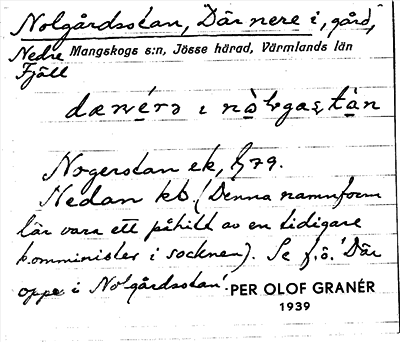 Nolgårdsstan, Där nere i, gård,
Nedre Mangskogs s:n, Jösse härad, Värmlands län
Fjäll
Nogerstan ek, Jr 79.
Nedan kb. (Denna namnform
lär vara ett påhitt av en tidigare
komminister i socknen). Se f.ö. 'Där
oppe i Nolgårdsstan'.
PER OLOF GRANÉR
1939